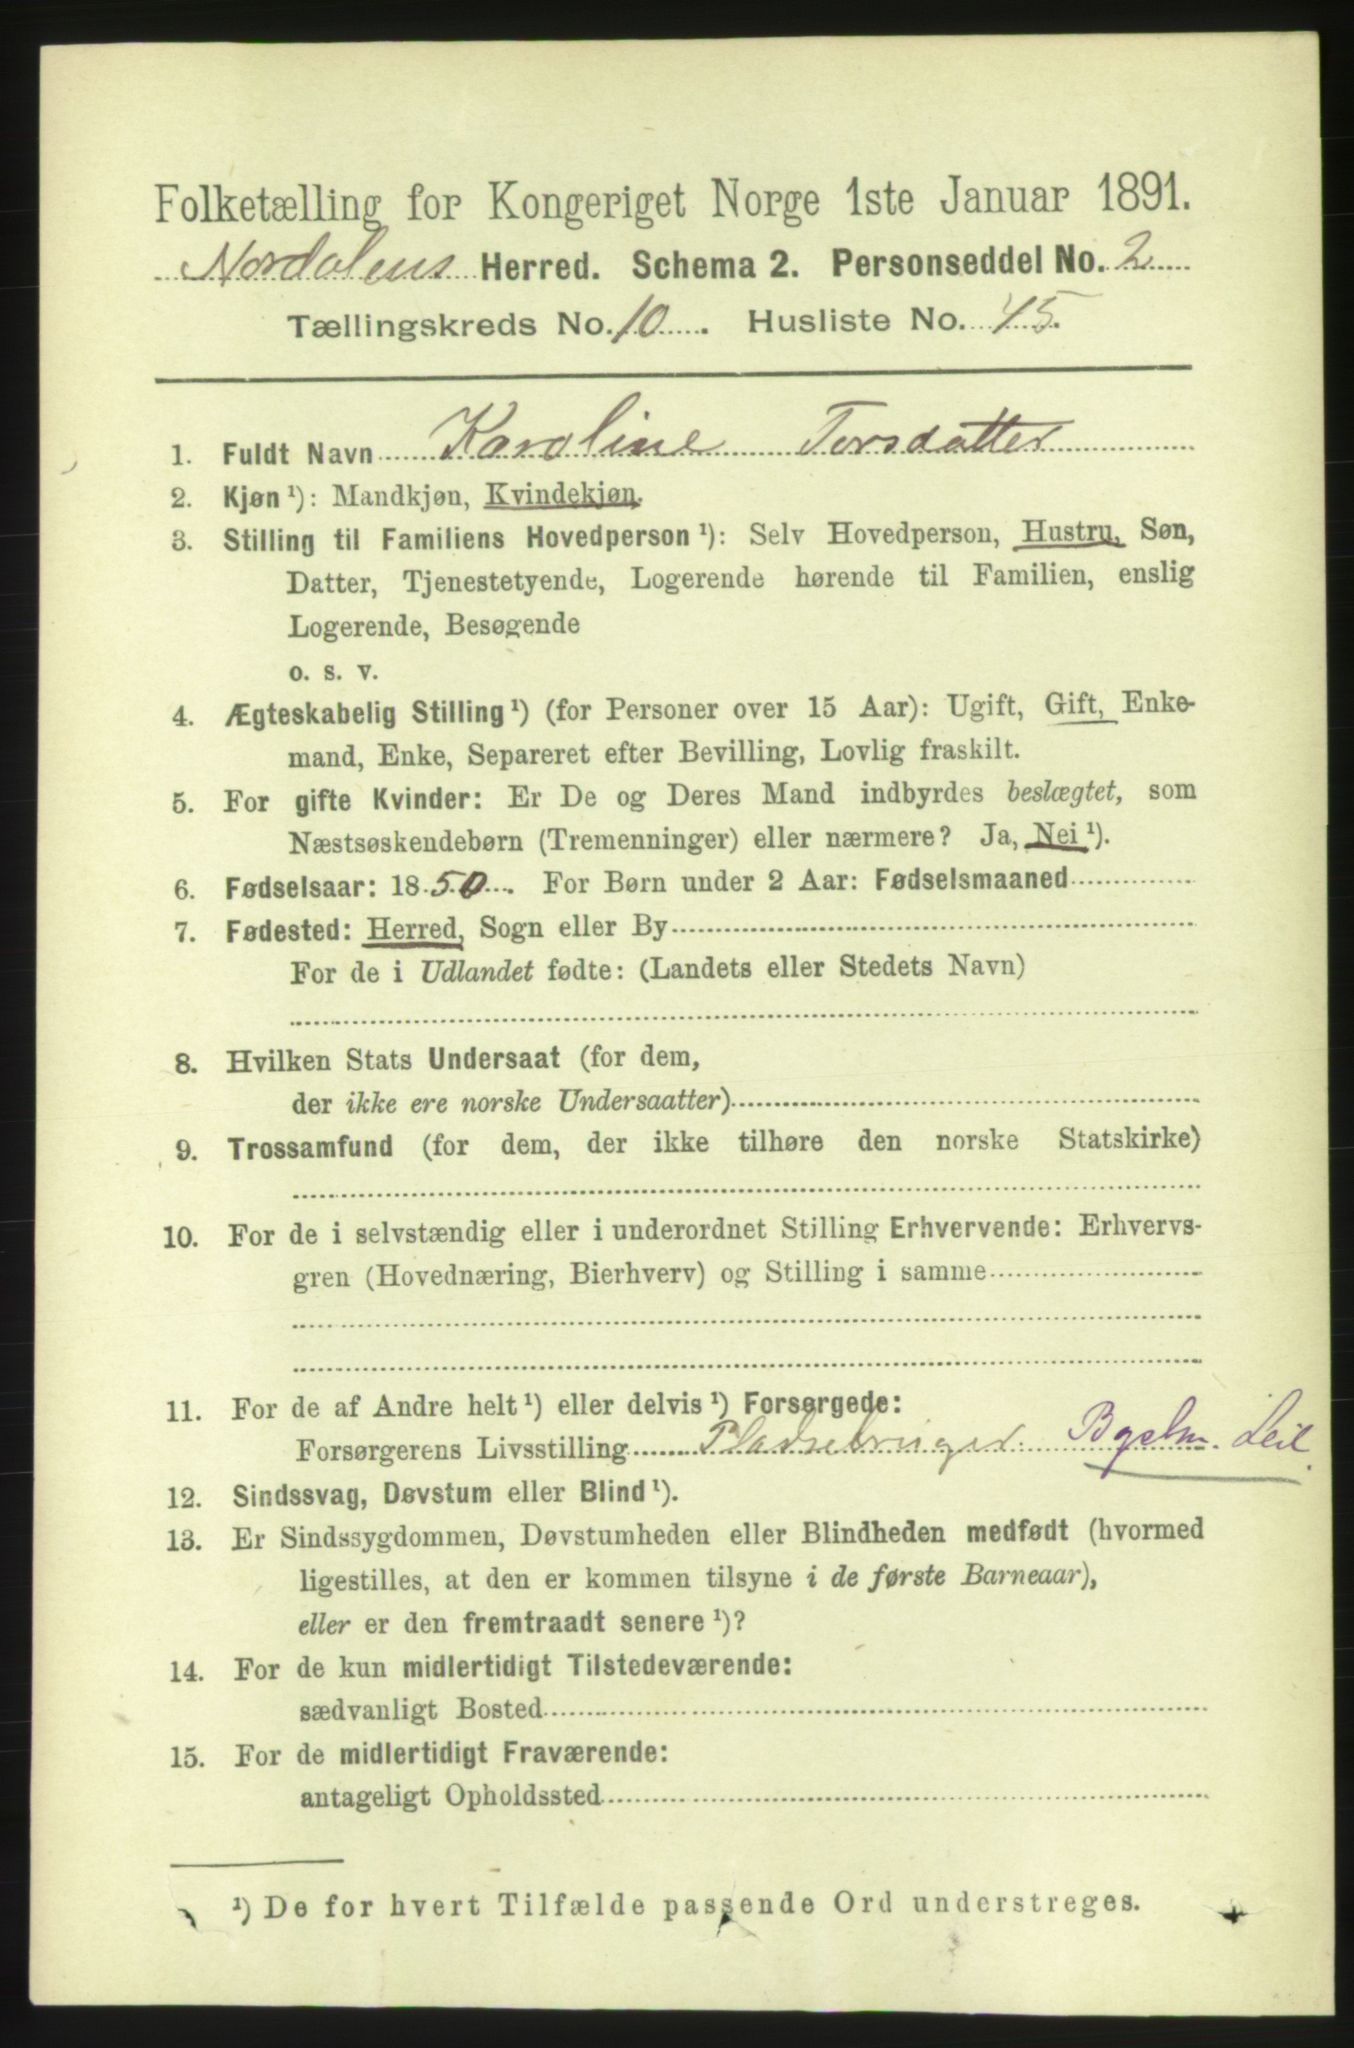 Folketælling for Kongeriget Norge 1ste Januar 1891.
Nordalens Herred. Schema 2. Personseddel No. 2
Tællingskreds No. 10. Husliste No. 45.
1. Fuldt Navn Karoline Torsdatter
2. Kjøn ¹): Mandkjøn, Kvindekjøn.
3. Stilling til Familiens Hovedperson ¹): Selv Hovedperson, Hustru, Søn,
Datter, Tjenestetyende, Logerende hørende til Familien, enslig
Logerende, Besøgende
o. s. v.
4. Ægteskabelig Stilling ¹) (for Personer over 15 Aar): Ugift, Gift, Enke-
mand, Enke, Separeret efter Bevilling, Lovlig fraskilt.
5. For gifte Kvinder: Er De og Deres Mand indbyrdes beslægtet, som
Næstsøskendebørn (Tremenninger) eller nærmere? Ja, Nei ¹).
6. Fødselsaar: 1850. For Børn under 2 Aar: Fødselsmaaned
7. Fødested: Herred, Sogn eller By
For de i Udlandet fødte: (Landets eller Stedets Navn)
8. Hvilken Stats Undersaat (for dem,
der ikke ere norske Undersaatter)
9. Trossamfund (for dem, der ikke tilhøre den norske Statskirke)
10. For de i selvstændig eller i underordnet Stilling Erhvervende: Erhvervs-
gren (Hovednæring, Bierhverv) og Stilling i samme
11. For de af Andre helt ¹) eller delvis ¹) Forsørgede:
Forsørgerens Livsstilling Pladsebruger. Bgselm. Leil.
12. Sindssvag, Døvstum eller Blind ¹).
13. Er Sindssygdommen, Døvstumheden eller Blindheden medfødt (hvormed
ligestilles, at den er kommen tilsyne i de første Barneaar),
eller er den fremtraadt senere ¹)?
14. For de kun midlertidigt Tilstedeværende:
sædvanligt Bosted
15. For de midlertidigt Fraværende:
antageligt Opholdssted
¹) De for hvert Tilfælde passende Ord understreges.